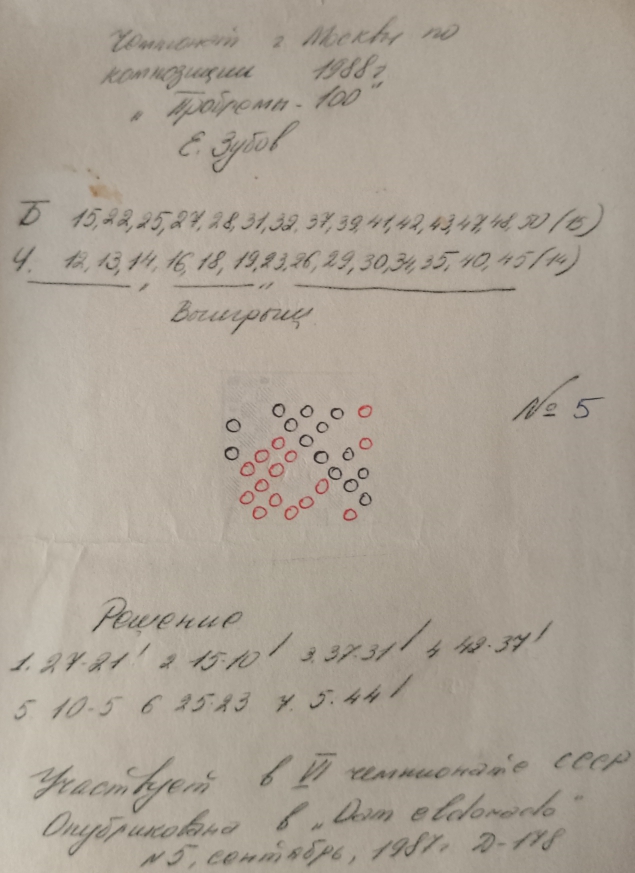 Чемпионат г Москвы по
композиции 1988г
"Проблемы-100"
Е. Зубов
Б 15,22,25,27,28,31,32,37,39,41,42,43,47,48,50 (15)
Ч. 12,13,14,16,18,19,23,26,29,30,34,35,40,45 (14)
Выигрыш
№ 5
Решение
1. 27-21! 2 15-10! 3. 37-31! 4 42-37!
5. 10-5 6 25-23 7. 5-44!
Участвует в VI чемпионате СССР
Опубликована в "Dam eldorado"
N5, сентябрь, 1987г Д-178